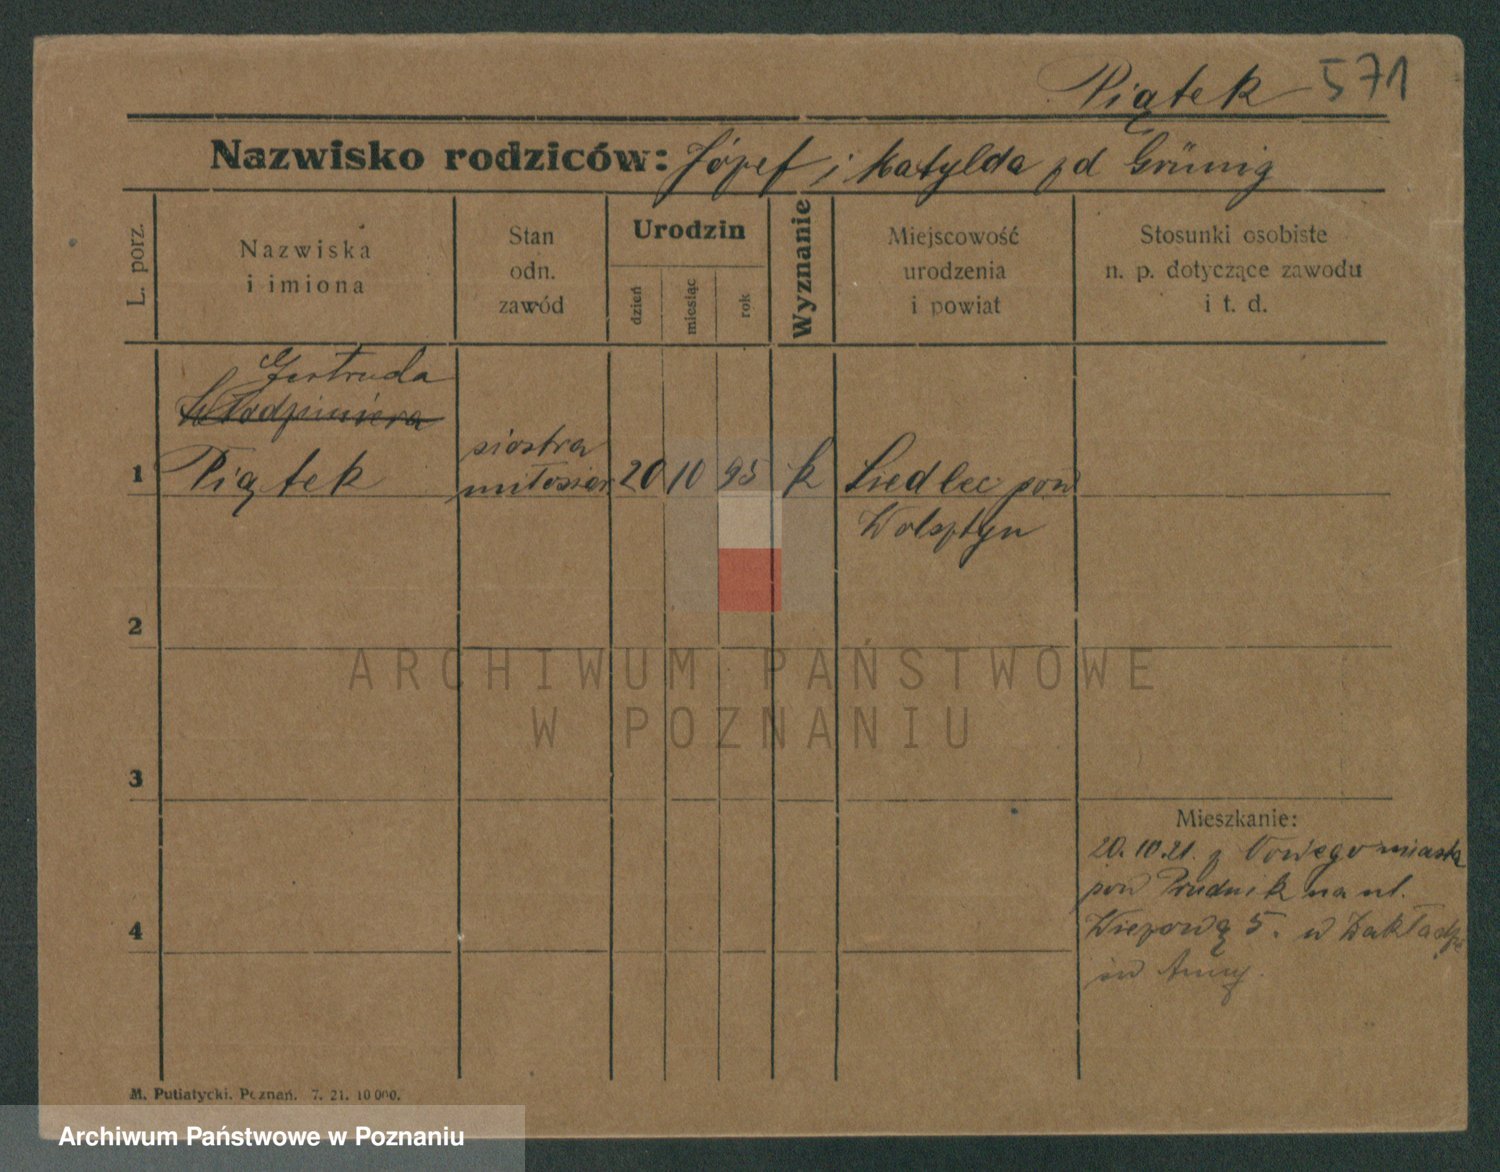 Piątek 571
Nazwisko rodziców: Józef i Matylda zd Grünig
L. porz.
Nazwiska
i imiona
Stan
odn.
zawód
Urodzin
dzień
miesiąc
rok
Wyznanie
Miejscowość
urodzenia
i powiat
Stosunki osobiste
n. p. dotyczące zawodu
i t. d.
Gertruda
Włodzimiera
1 Piątek
siostra
miłosier
20 10 95 k
Siedlec pow
Wolsztyn
2
3
4
Mieszkanie:
20.10.21. z Nowego miasta
pow Prudnik na ul.
Wiezową 5. w Zakładzie
św Anny.
ARCHIWUM PAŃSTWOWE
W POZNANIU
M. Putiatycki. Poznań. 7. 21. 10 000.
Archiwum Państwowe w Poznaniu